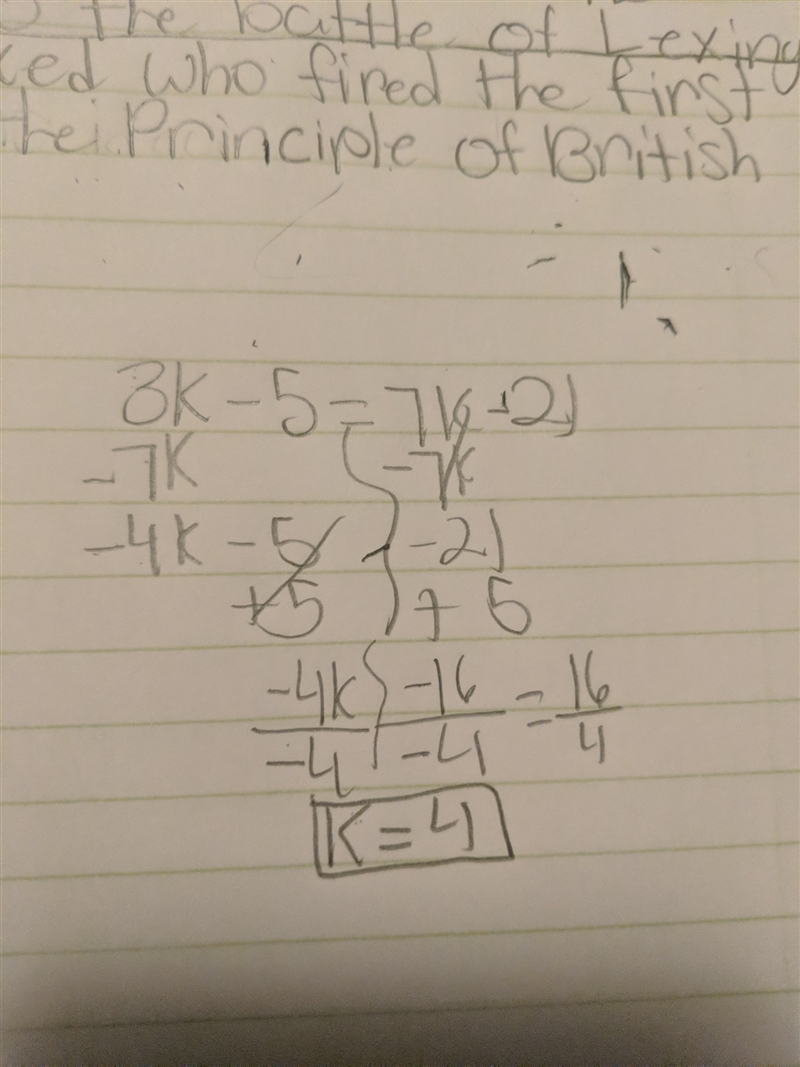 the battle of Lexing
ked who fired the first
the Principle of British
3K - 5 = 7K - 21
-7K -7K
-4K - 5 -21
+5 + 5
-4K -16 = 16
-4 -4 4
K = 4